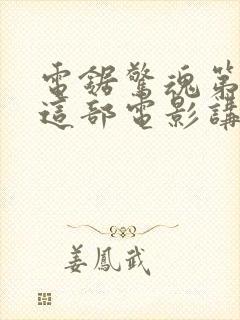 電鋸驚魂第
這部電影講
姜鳳武